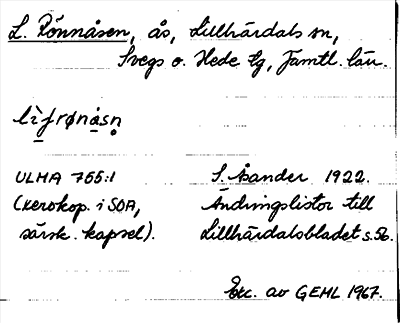 L. Rönnåsen, ås, Lillhärdals sn,
Svegs o. Hede tg, Jamtl. län.
ULMA 755:1
(xerokop. i SOA,
särsk. kapsel).
S. Åsander 1922.
Ändringslistor till
Lillhärdalsbladet s.56.
Exc. av GEHL 1967.